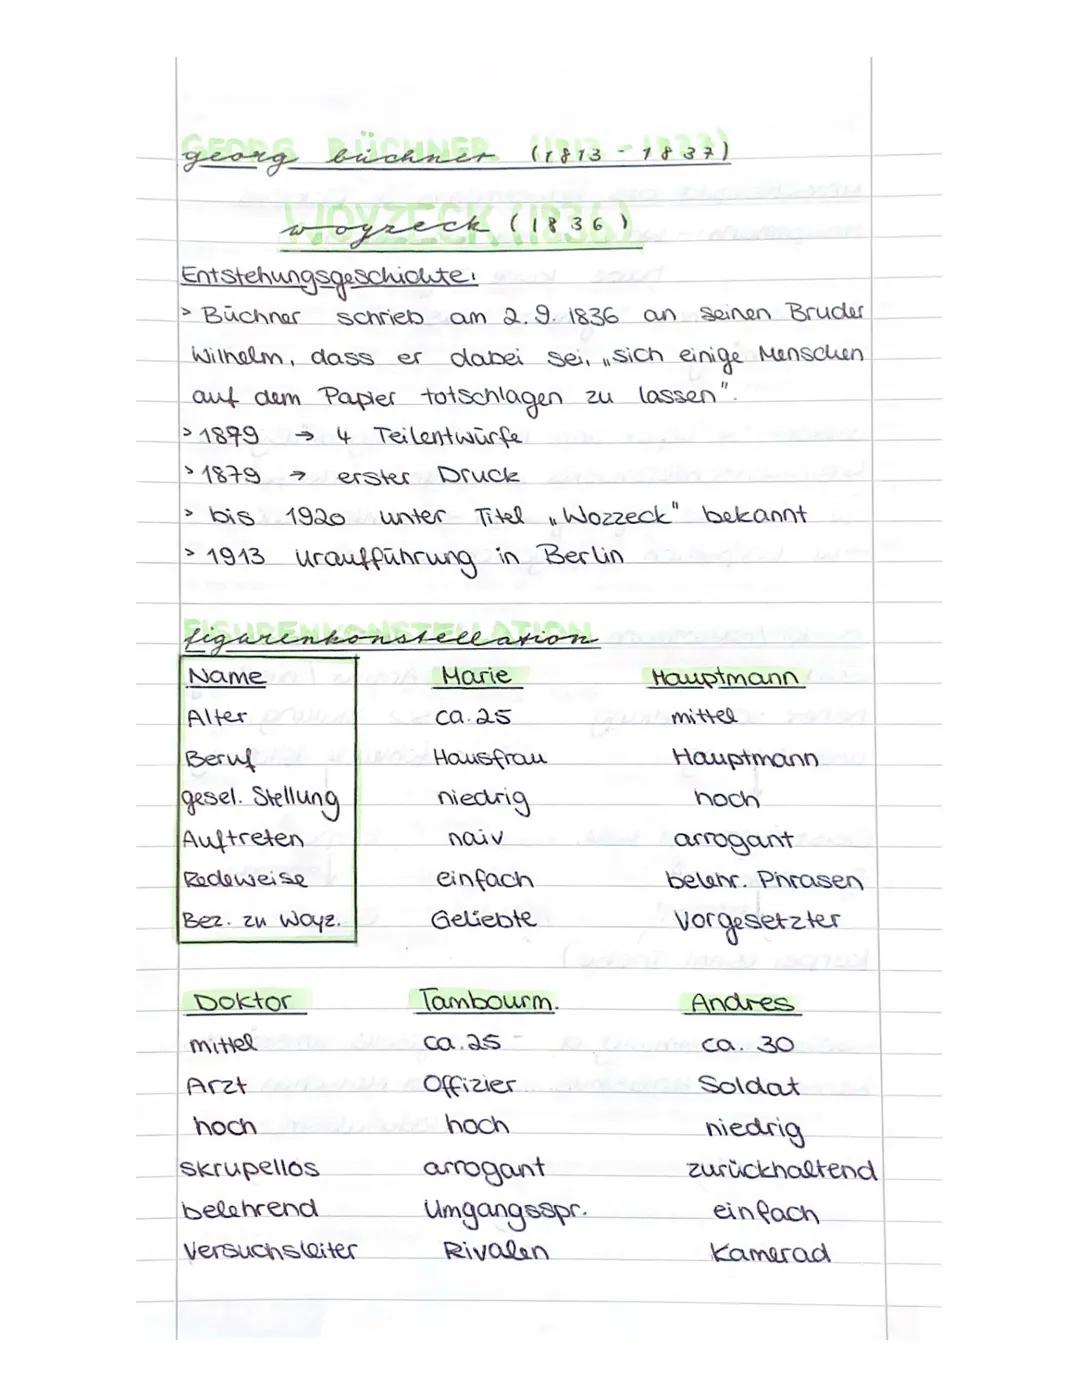 georg büchner (1813 - 1837)
woyzeck (1836)
Entstehungsgeschichte:
> Büchner schrieb am 2.9.1836 an seinen Bruder
Wilhelm, dass er dabei sei, „sich einige Menschen
auf dem Papier totschlagen zu lassen".
> 1879 → 4 Teilentwürfe
> 1879 → erster Druck
> bis 1920 unter Titel „Wozzeck" bekannt
> 1913 Uraufführung in Berlin
figurenkonstellation
Name Marie Hauptmann
Alter ca. 25 mittel
Beruf Hausfrau Hauptmann
gesel. Stellung niedrig hoch
Auftreten naiv arrogant
Redeweise einfach belehr. Phrasen
Bez. zu Woyz. Geliebte Vorgesetzter
Doktor Tambourm. Andres
mittel ca. 25 ca. 30
Arzt Offizier Soldat
hoch hoch niedrig
skrupellos arrogant zurückhaltend
belehrend Umgangsspr. einfach
Versuchsleiter Rivalen Kamerad